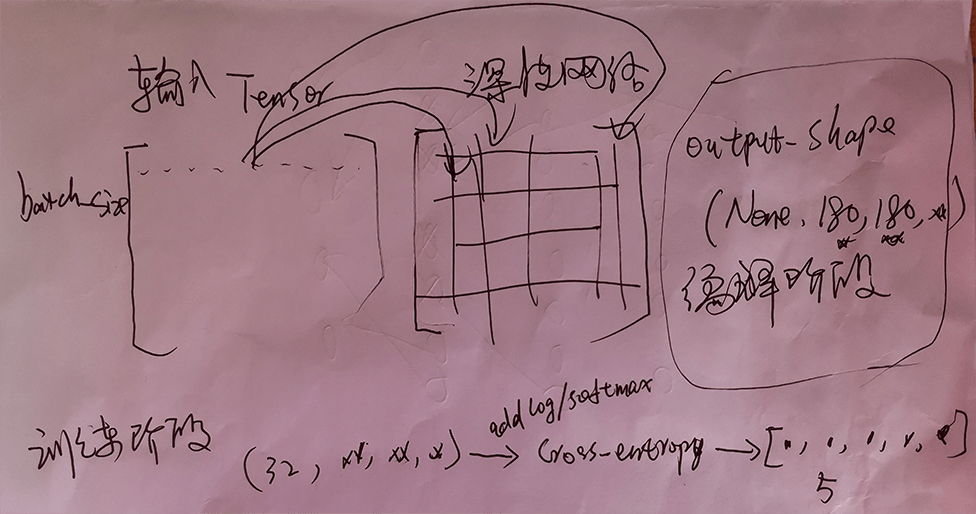 输入 Tensor
深度网络
batch_size
output-shape
(None, 180, 180, xx)
编译阶段
训练阶段
(32, xx, xx, x) → cross-entropy → [ , , , , ]
add log/softmax
5